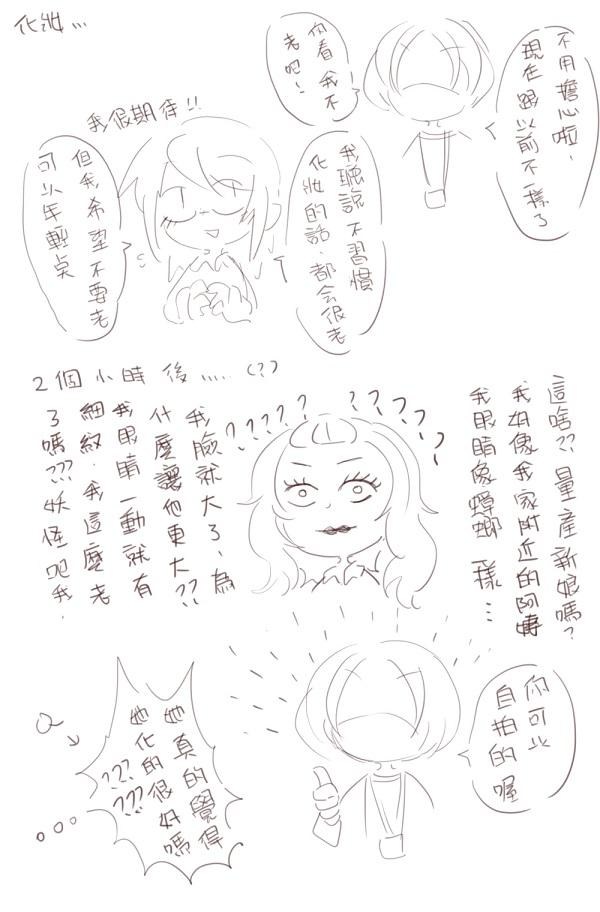 化妝...
不用擔心啦，
現在跟以前不一樣了
你看我不
老吧！
我很期待!!
我聽說不習慣
化妝的話．都会很老
但我希望不要老
可以年輕点
2個小時後.....(??)
這啥?? 量產新娘嗎?
我好像我家附近的阿嬸
我眼睛像蟑螂一樣...
?????? ?????
我臉就大了，為
什麼讓他更大??
我眼睛一動就有
細紋．我這麼老
了嗎??? 妖怪吧我．
你可以
自拍的喔
她真的覺得
她化的很好嗎
???
???
Q